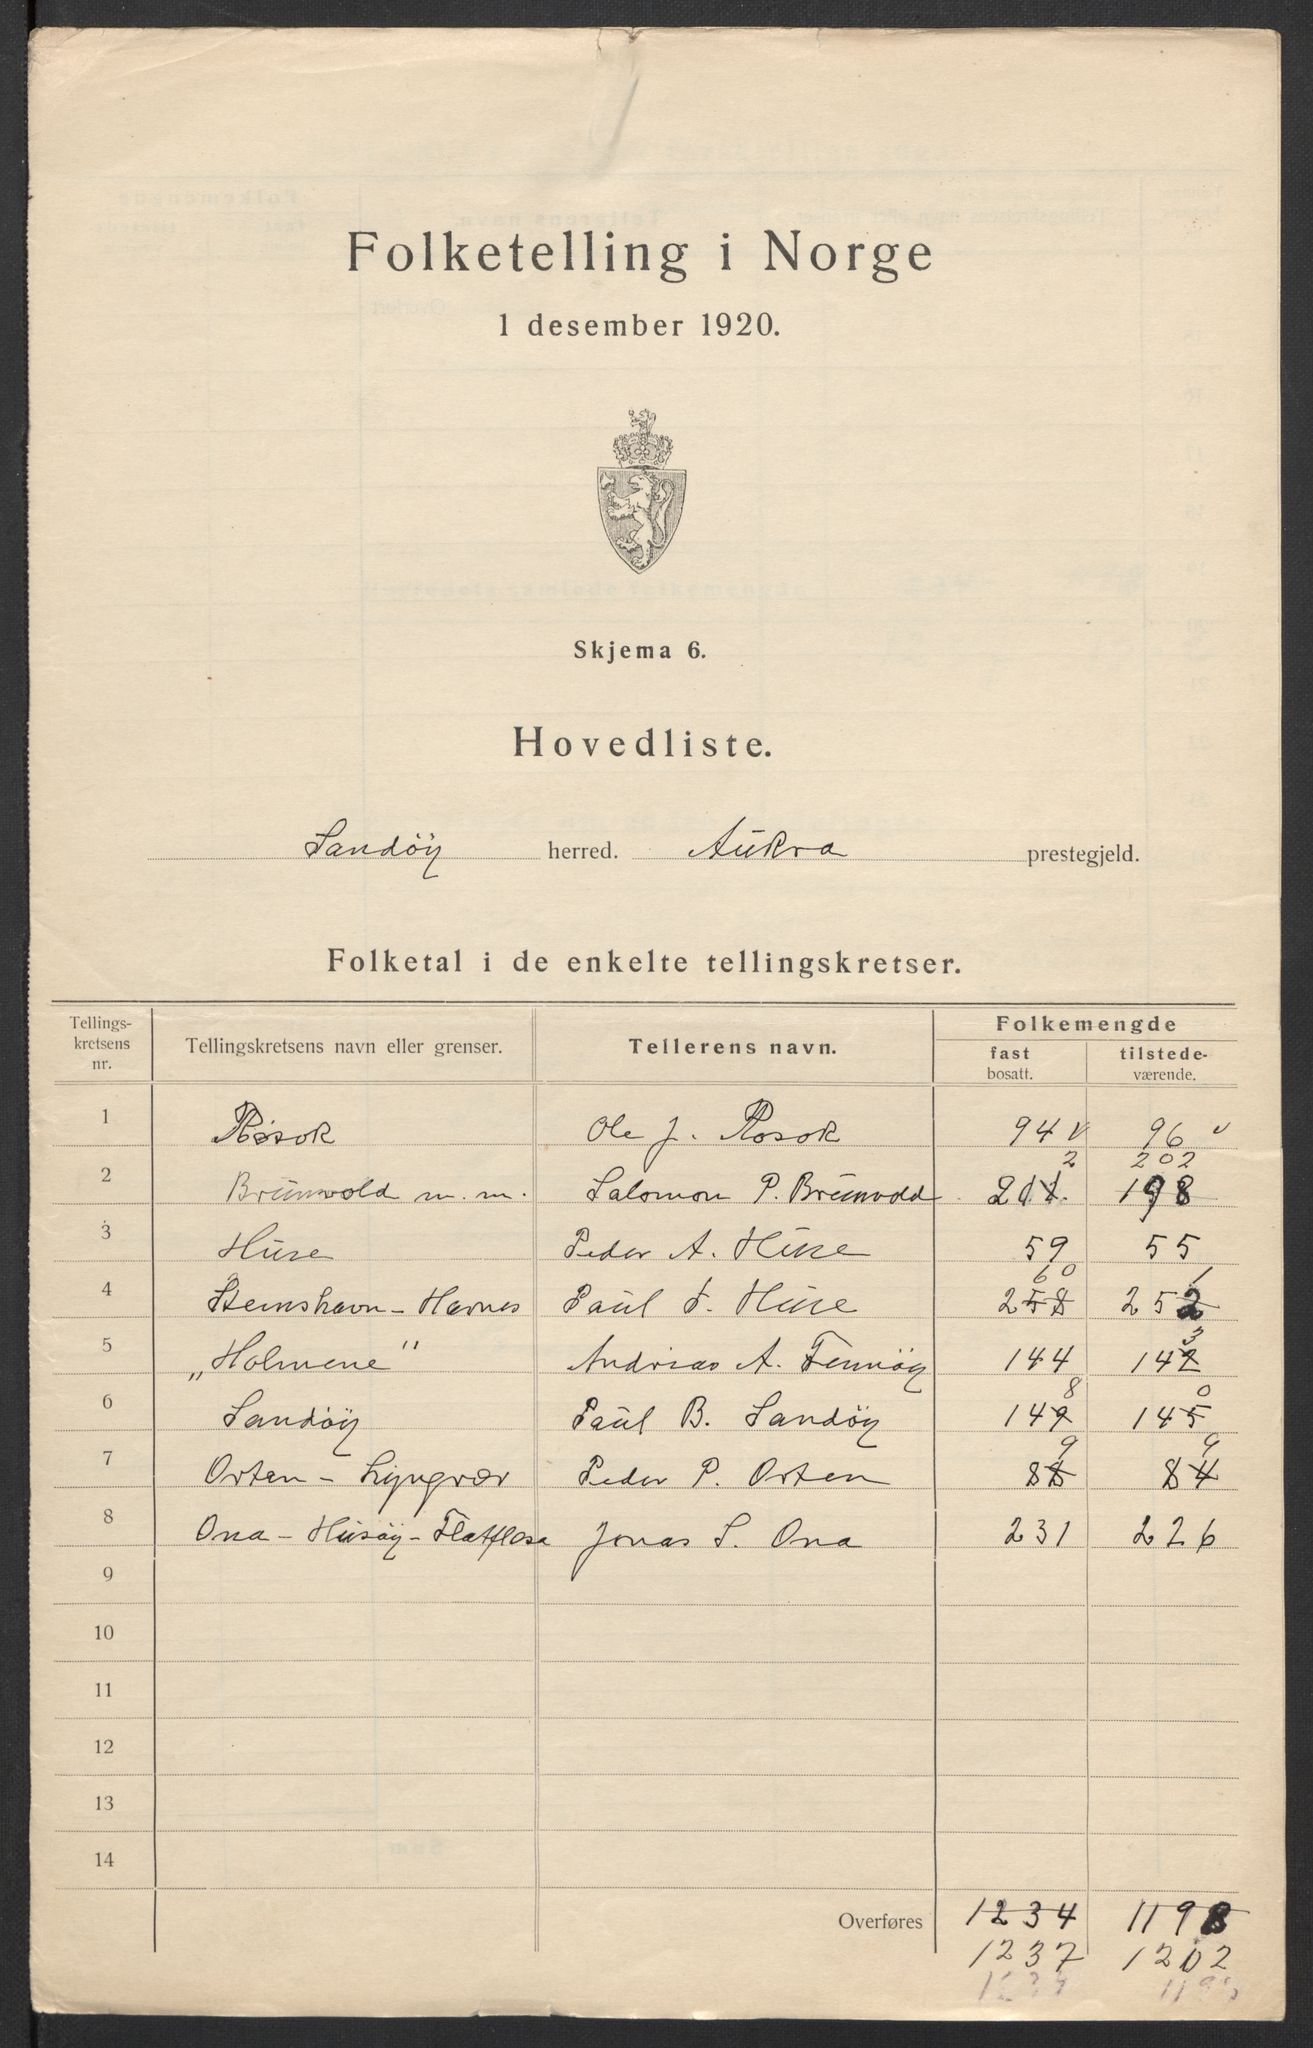 Folketelling i Norge
1 desember 1920.
Skjema 6.
Hovedliste.
Sandöy herred. Aukra prestegjeld.
Folketal i de enkelte tellingskretser.
Tellings-
kretsens
nr.
Tellingskretsens navn eller grenser.
Tellerens navn.
Folkemengde
fast
bosatt.
tilstede-
værende.
1 Røsok Ole J. Rosok 94 v 96 v
2 202
2 Brunvold m. m. Salomon P. Brunvold 211. 198
3 Huse Peder A. Huse 59 55
60 1
4 Stemshavn - Harnes Paul F. Huse 258 252
3
5 „Holmene" Andreas A. Finnöy 144 142
8 0
6 Sandöy Paul B. Sandöy 149 145
9 9
7 Orten - Lyngvær Peder P. Orten 88 84
8 Ona - Husöy - Flatflesa Jonas S. Ona 231 226
9
10
11
12
13
14
Overføres 1234 1198
1237 1202